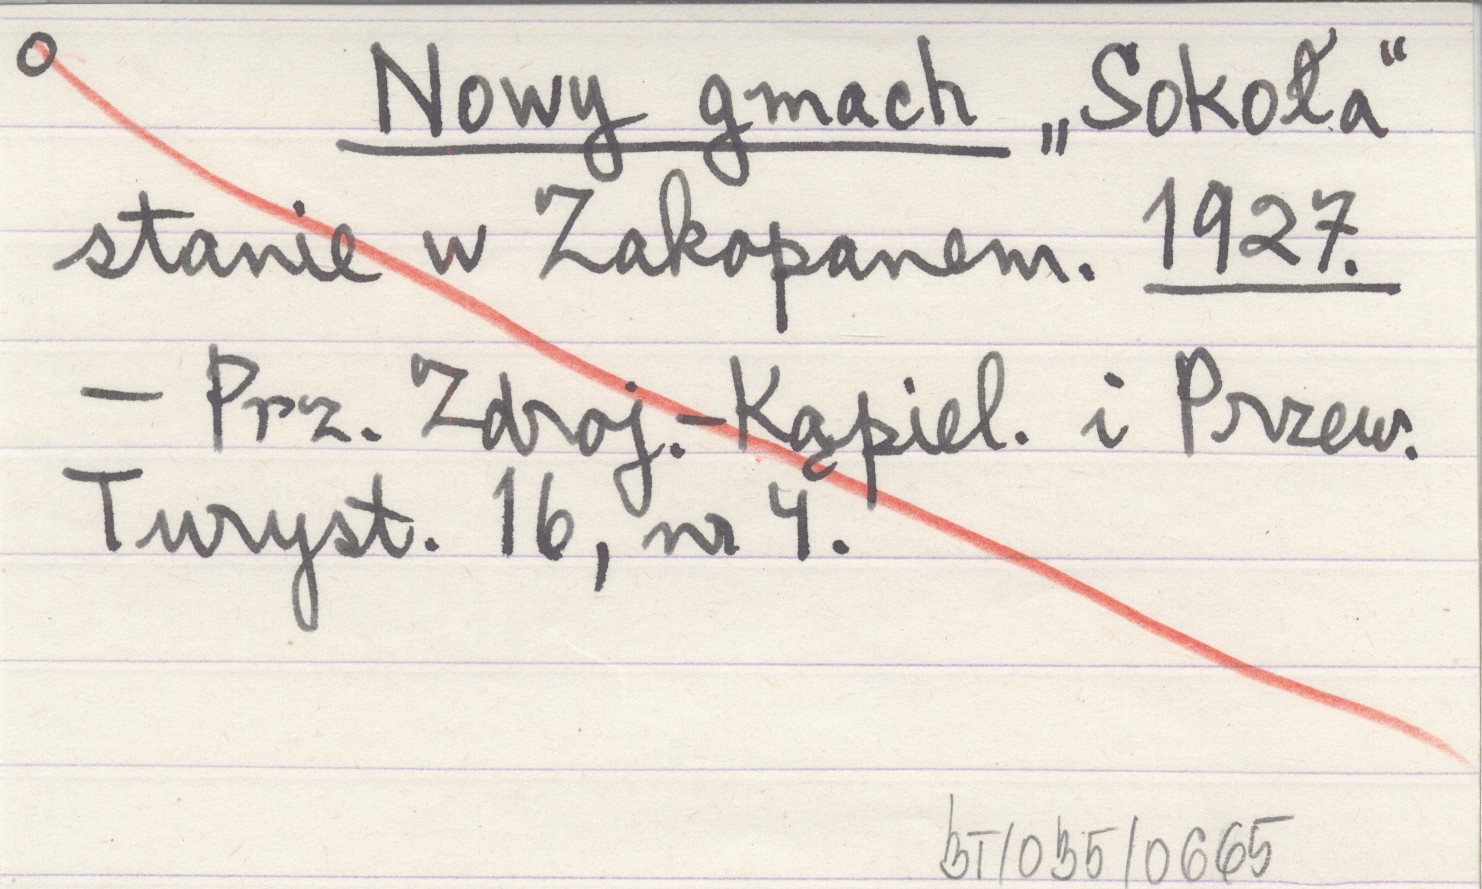 Nowy gmach „Sokoła“
stanie w Zakopanem. 1927.
— Prz. Zdroj.-Kąpiel. i Przew.
Turyst. 16, nr 4.
BT/035/0665